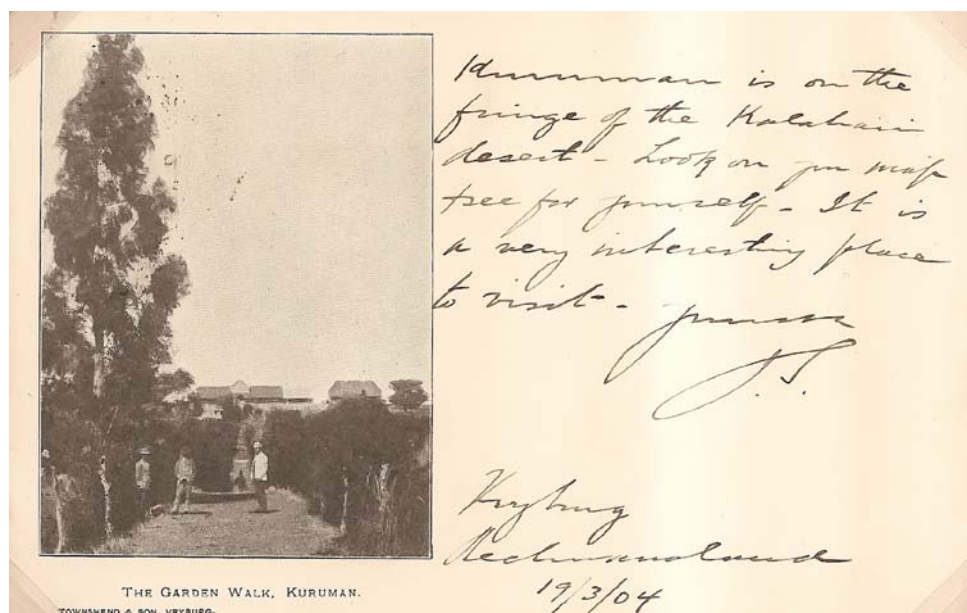 Kuruman is on the
fringe of the Kalahari
desert - Look on your map
& see for yourself - It is
a very interesting place
to visit -
yours
J.S.
Vryburg
Bechuanaland
19/3/04
THE GARDEN WALK, KURUMAN.
TOWNSHEND & SON, VRYBURG.